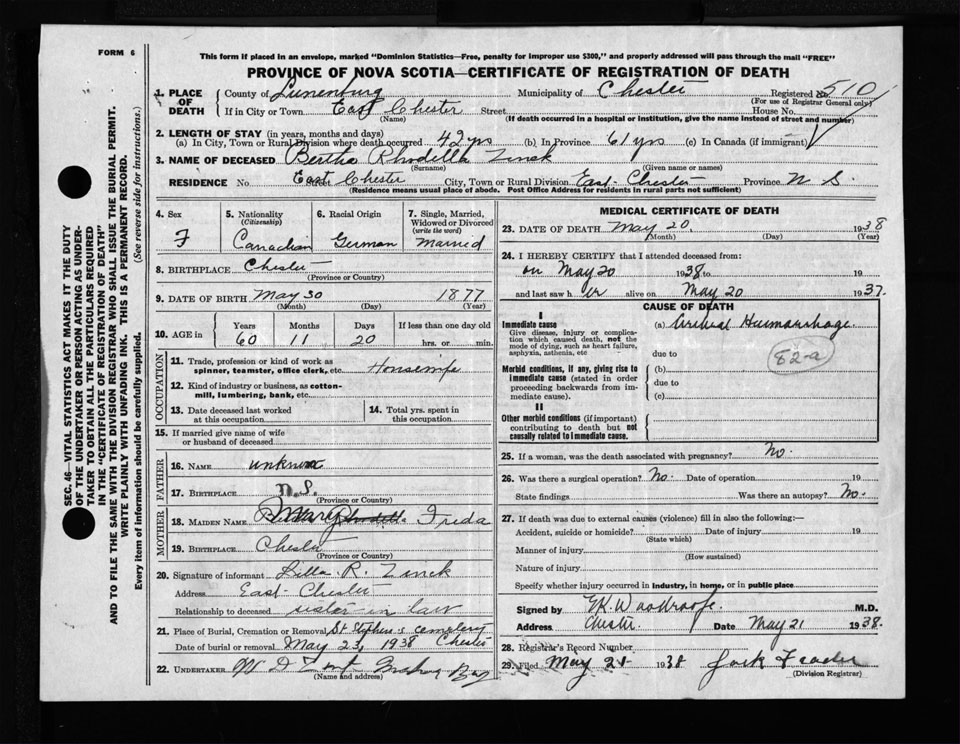 FORM 6
This form if placed in an envelope, marked "Dominion Statistics—Free, penalty for improper use $300," and properly addressed will pass through the mail "FREE"
PROVINCE OF NOVA SCOTIA—CERTIFICATE OF REGISTRATION OF DEATH
1. PLACE OF DEATH County of Lunenburg Municipality of Chester Registered No. 510
(For use of Registrar General only)
If in City or Town East Chester Street House No.
(Name) (If death occurred in a hospital or institution, give the name instead of street and number)
2. LENGTH OF STAY (in years, months and days)
(a) In City, Town or Rural Division where death occurred 42 yrs (b) In Province 61 yrs (c) In Canada (if immigrant)
3. NAME OF DECEASED Bertha Rhodella Zinck
(Surname) (Given name or names)
RESIDENCE No. East Chester Street City, Town or Rural Division East-Chester Province N S.
(Residence means usual place of abode. Post Office Address for residents in rural parts not sufficient)
4. Sex 5. Nationality 6. Racial Origin 7. Single, Married, Widowed or Divorced
(Citizenship) (write the word)
F Canadian German Married
8. BIRTHPLACE Chester
(Province or Country)
9. DATE OF BIRTH May 30 1877
(Month) (Day) (Year)
10. AGE in Years Months Days If less than one day old
60 11 20 hrs. or min.
OCCUPATION
11. Trade, profession or kind of work as spinner, teamster, office clerk, etc. Housewife
12. Kind of industry or business, as cotton-mill, lumbering, bank, etc.
13. Date deceased last worked at this occupation 14. Total yrs. spent in this occupation
15. If married give name of wife or husband of deceased
FATHER
16. NAME unknown
17. BIRTHPLACE N.S.
(Province or Country)
MOTHER
18. MAIDEN NAME Mary Rhodella Freda
19. BIRTHPLACE Chester
(Province or Country)
20. Signature of informant Lilla R. Zinck
Address East-Chester
Relationship to deceased sister-in law
21. Place of Burial, Cremation or Removal St Stephen's cemetery Chester
Date of burial or removal May 23, 1938
22. UNDERTAKER
(Name and address)
MEDICAL CERTIFICATE OF DEATH
23. DATE OF DEATH May 20 1938
(Month) (Day) (Year)
24. I HEREBY CERTIFY that I attended deceased from:
on May 20 1938 to 19
and last saw her alive on May 20 1937.
CAUSE OF DEATH
I
Immediate cause
Give disease, injury or complication which caused death, not the mode of dying, such as heart failure, asphyxia, asthenia, etc
(a) Haemorrhage
82-a
due to
Morbid conditions, if any, giving rise to immediate cause (stated in order proceeding backwards from immediate cause).
(b)
due to
(c)
II
Other morbid conditions (if important) contributing to death but not causally related to immediate cause.
25. If a woman, was the death associated with pregnancy? No.
26. Was there a surgical operation? No. Date of operation 19
State findings Was there an autopsy? No.
27. If death was due to external causes (violence) fill in also the following:—
Accident, suicide or homicide? Date of injury 19
(State which)
Manner of injury
(How sustained)
Nature of injury
Specify whether injury occurred in industry, in home, or in public place
Signed by Woodroofe. M.D.
Address Chester. Date May 21 1938.
28. Registrar's Record Number
29. Filed May 21 1938
(Division Registrar)
SEC. 46—VITAL STATISTICS ACT MAKES IT THE DUTY
OF THE UNDERTAKER OR PERSON ACTING AS UNDER-
TAKER TO OBTAIN ALL THE PARTICULARS REQUIRED
IN THE "CERTIFICATE OF REGISTRATION OF DEATH"
AND TO FILE THE SAME WITH THE DIVISION REGISTRAR WHO SHALL ISSUE THE BURIAL PERMIT.
WRITE PLAINLY WITH UNFADING INK. THIS IS A PERMANENT RECORD.
Every item of information should be carefully supplied. (See reverse side for instructions.)